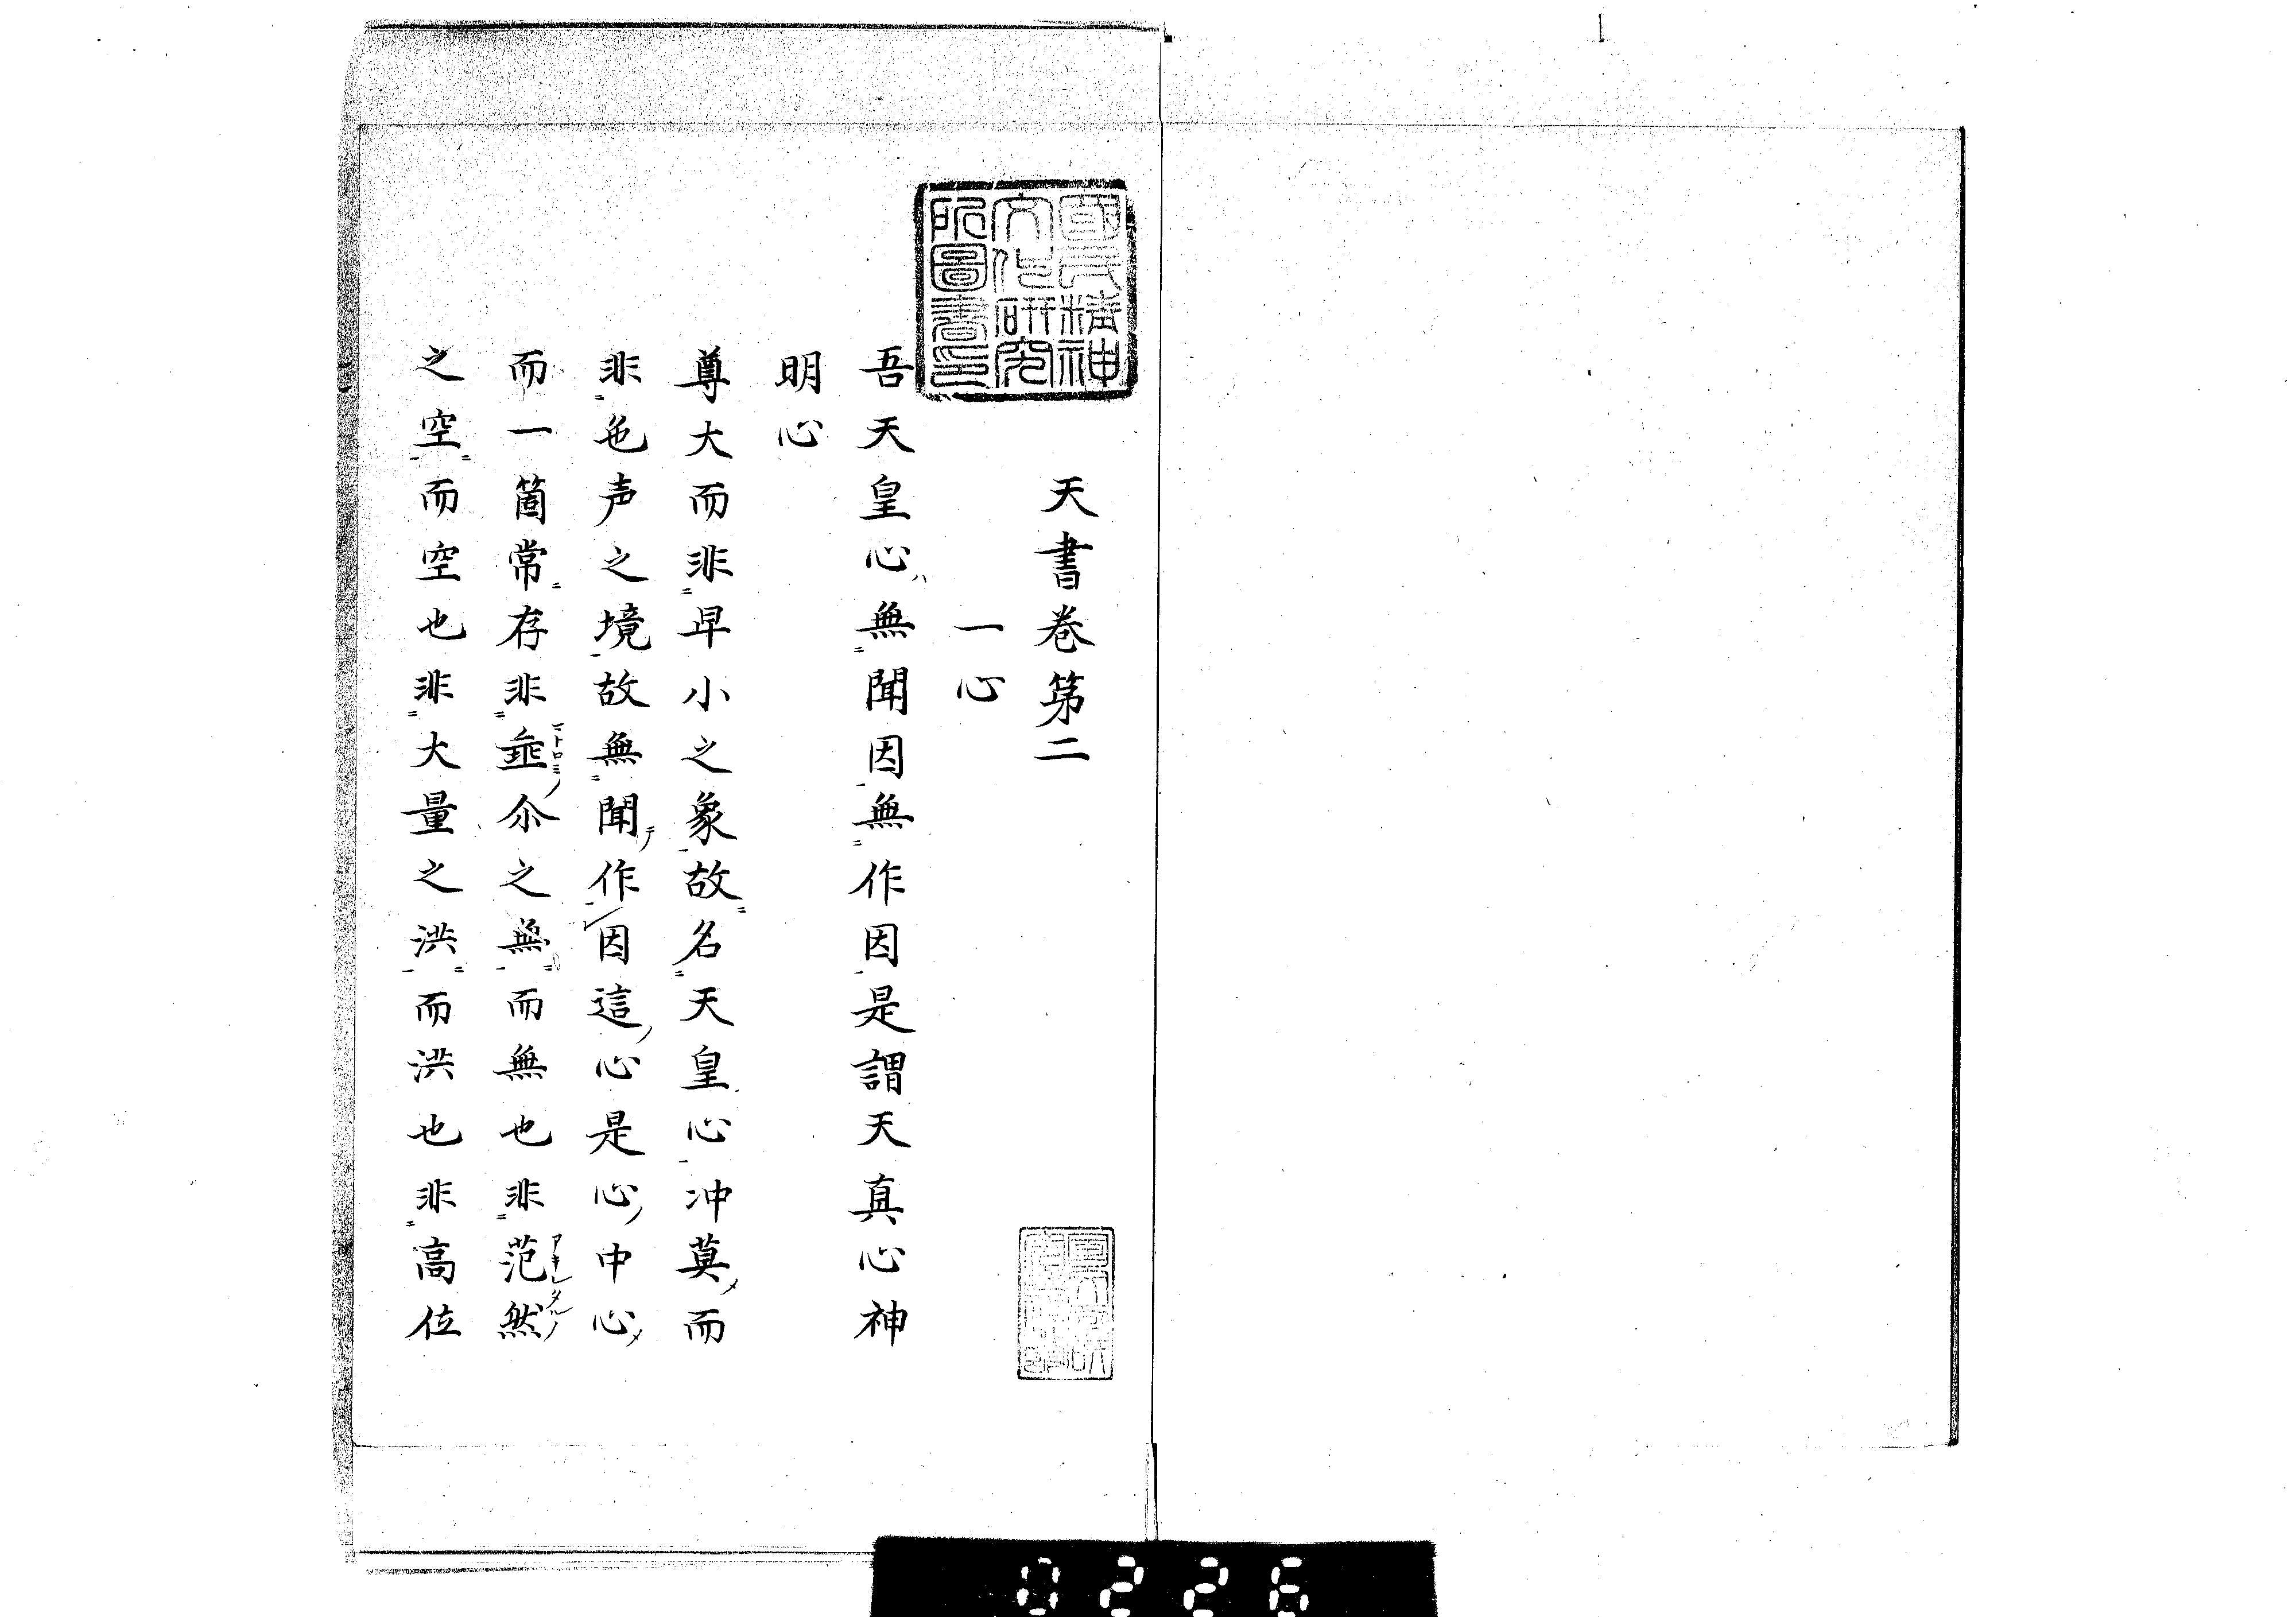 國民精神
文化研究
所圖書印
天書巻第二
一心
吾天皇心ハ無聞因無作因是謂天真心神
明心
尊大而非早小之象故名天皇心冲莫ノメ而
非色声之境故無聞テノ作因這ノ心是心ノ中心ノメ
而一箇常存非𡉏尒之無而無也非范然ノ
之空而空也非大量之洪而洪也非高位
0226